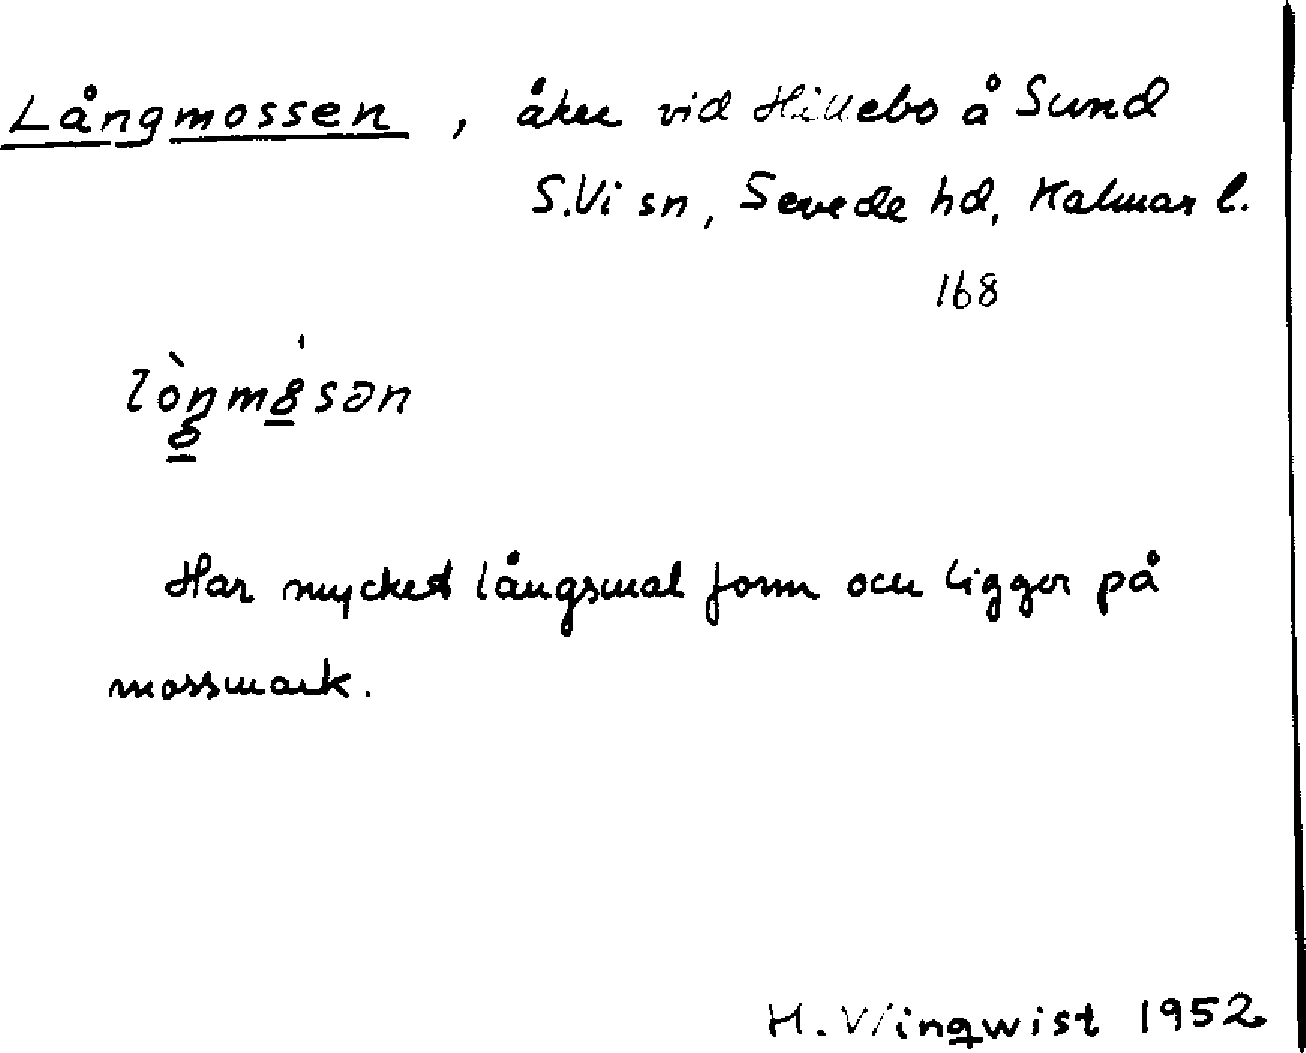 Långmossen, åker vid Hillebo å Sund
S.Vi sn, Sevede hd, Kalmar l.
168
lòŋmȣ̲sən
Har mycket långsmal form och ligger på
mossmark.
H. Wingwist 1952